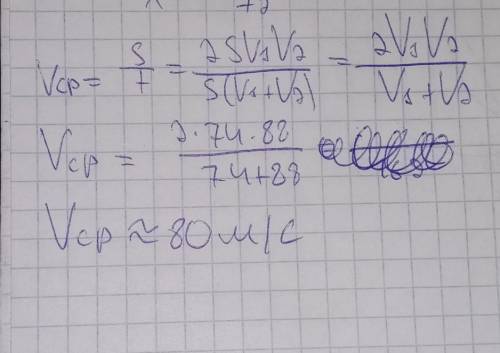 Vср = S/t = 2SV₁V₂/S(V₁+V₂) = 2V₁V₂/V₁+V₂
Vср = 2·74·88/74+88
Vср ≈ 80 м/с